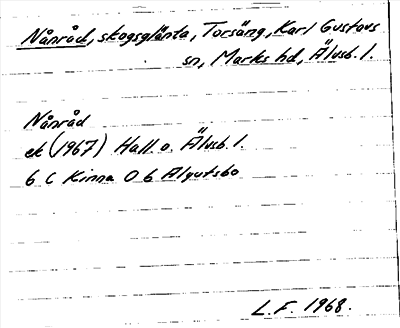 Nånråd, skogsglänta, Torsäng, Karl Gustavs
sn, Marks hd, Älvsb. l.
Nånråd
ek (1967) Hall. o. Älvsb. l.
6 C Kinna 0 b Älgutsbo
L.F. 1968.